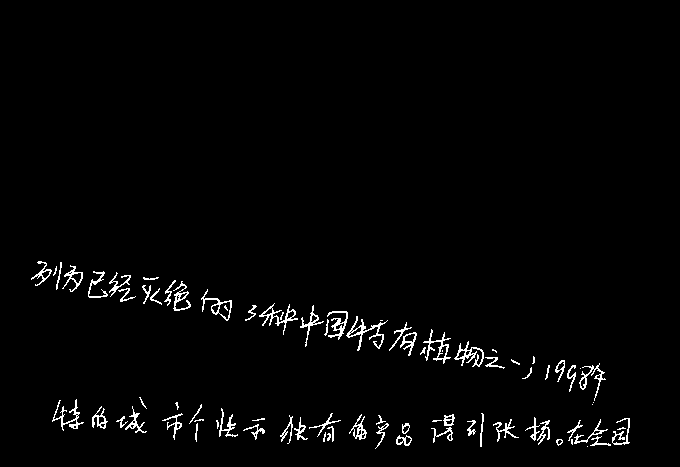 列为已经灭绝的3种中国特有植物之一，1998年
特的城市个性示独有的产品得到张扬。在全国